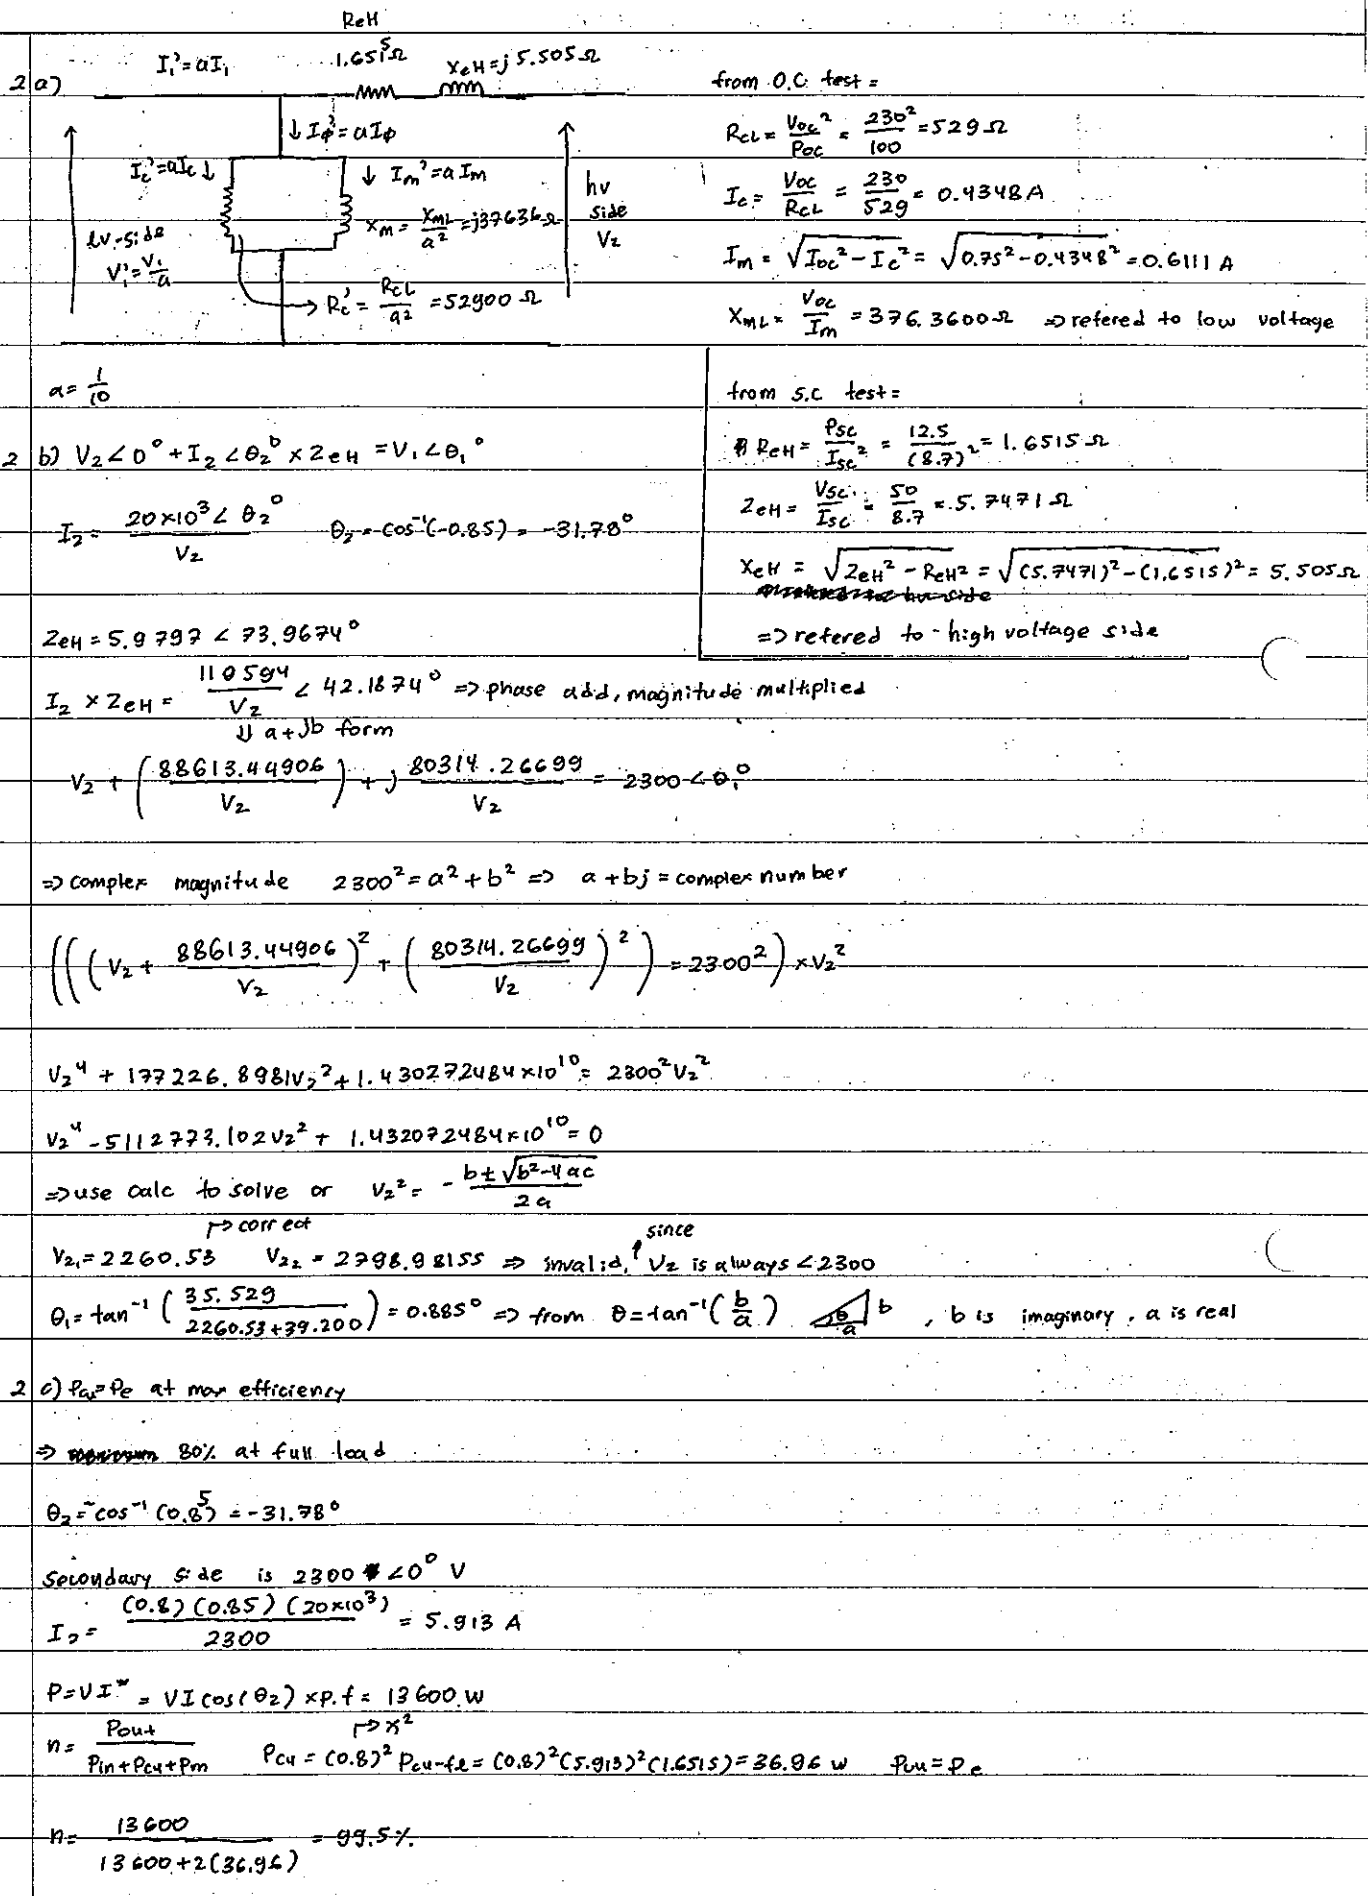 ReH
I₁' = aI₁ 1.6515Ω XeH = j5.505Ω
2 a)
↓ Iφ' = aIφ
Ic' = aIc ↓ ↓ Im' = aIm
Xm = XmL/a² = j37636Ω
lv-side V₁' = V₁/a
hv side V₂
Rc' = RcL/a² = 52900 Ω
from O.C. test =
RcL = Voc²/Poc = 230²/100 = 529 Ω
Ic = Voc/RcL = 230/529 = 0.4348 A
Im = √(Ioc² - Ic²) = √(0.75² - 0.4348²) = 0.6111 A
XmL = Voc/Im = 376.3600 Ω => refered to low voltage
a = 1/10
from S.C test =
ReH = Psc/Isc² = 12.5/(8.7)² = 1.6515 Ω
ZeH = Vsc/Isc = 50/8.7 = 5.7471 Ω
XeH = √(ZeH² - ReH²) = √((5.7471)² - (1.6515)²) = 5.505 Ω
=> refered to high voltage side
2 b) V₂∠0° + I₂∠θ₂° × ZeH = V₁∠θ₁°
I₂ = 20×10³∠θ₂°/V₂ θ₂ = -cos⁻¹(-0.85) = -31.78°
ZeH = 5.9797 ∠ 73.9674°
I₂ × ZeH = 110594/V₂ ∠ 42.1874° => phase add, magnitude multiplied
⇓ a+jb form
V₂ + (88613.44906/V₂) + j 80314.26699/V₂ = 2300∠θ₁°
=> complex magnitude 2300² = a² + b² => a + bj = complex number
(((V₂ + 88613.44906/V₂)² + (80314.26699/V₂)²) = 2300²) × V₂²
V₂⁴ + 177226.8981V₂² + 1.430272484×10¹⁰ = 2300²V₂²
V₂⁴ - 5112773.102V₂² + 1.432072484×10¹⁰ = 0
=> use calc to solve or V₂² = - b±√(b²-4ac)/2a
↱ correct since
V₂₁ = 2260.53 V₂₂ = 2798.98155 => invalid, ↑ V₂ is always <2300
θ₁ = tan⁻¹(35.529/(2260.53+39.200)) = 0.885° => from θ = tan⁻¹(b/a) θ a b, b is imaginary, a is real
2 c) Pcu = Pe at max efficiency
=> 80% at full load
θ₂ = -cos⁻¹(0.85) = -31.78°
Secondary side is 2300 ∠0° V
I₂ = (0.8)(0.85)(20×10³)/2300 = 5.913 A
P = VI* = VI cos(θ₂) × p.f = 13600 W
↱ x²
n = Pout/(Pin+Pcu+Pm) Pcu = (0.8)² Pcu-fl = (0.8)²(5.913)²(1.6515) = 36.96 W Pcu = Pe
n = 13600/(13600+2(36.96)) = 99.5%